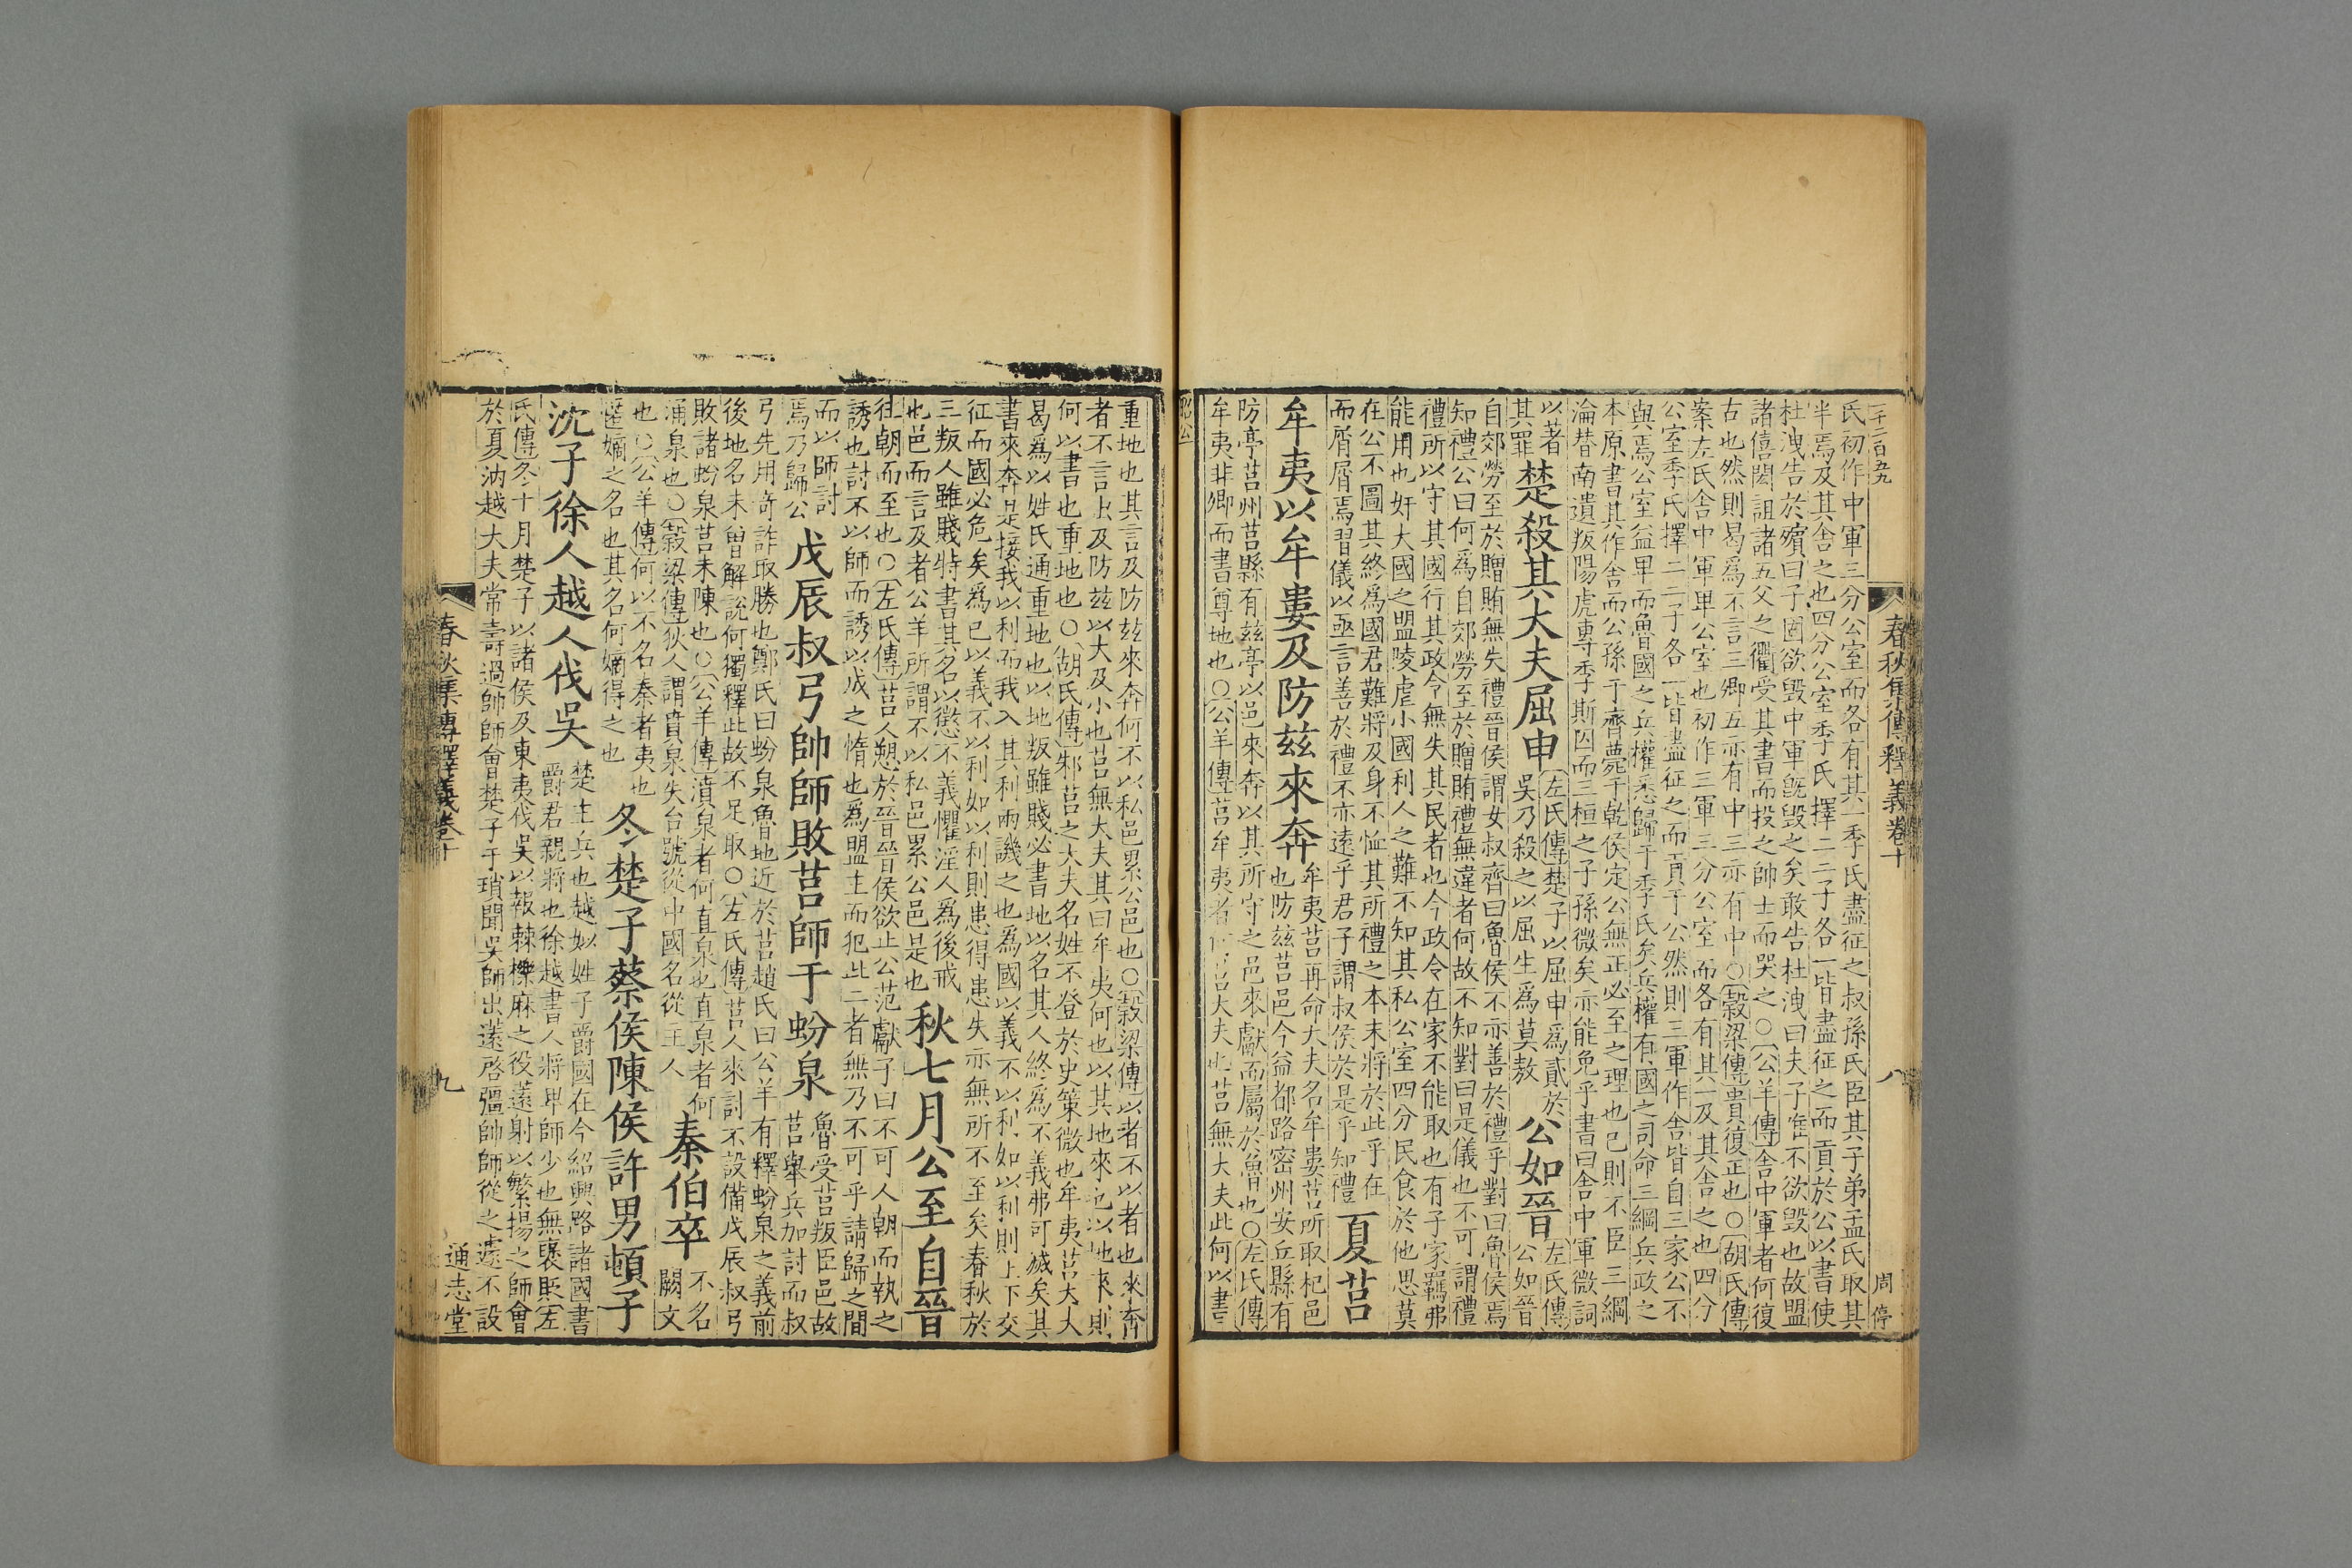 一千二百五九
春秋集傳釋義卷十
八
周停
氏初作中軍三分公室而各有其一季氏盡征之叔孫氏臣其子弟孟氏取其
半焉及其舍之也四分公室季氏擇二二子各一皆盡征之而貢於公以書使
杜洩告於殯曰子固欲毀中軍旣毀之矣敢告杜洩曰夫子唯不欲毀也故盟
諸僖閎詛諸五父之衢受其書而投之帥士而哭之○公羊傳舍中軍者何復
古也然則曷爲不言三卿五亦有中三亦有中○穀梁傳貴復正也○胡氏傳
案左氏舍中軍卑公室也初作三軍三分公室而各有其一及其舍之也四分
公室季氏擇二二子各一皆盡征之而貢于公然則三軍作舍皆自三家公不
與焉公室益卑而魯國之兵權悉歸于季氏矣兵權有國之司命三綱兵政之
本原書其作舍而公孫于齊薨于乾侯定公無正必至之理也已則不臣三綱
淪替南遺叛陽虎專季斯囚而三桓之子孫微矣亦能免乎書曰舍中軍微詞
以著
其罪
楚殺其大夫屈申
左氏傳楚子以屈申爲貳於
吳乃殺之以屈生爲莫敖
公如晉
左氏傳
公如晉
自郊勞至於贈賄無失禮晉侯謂女叔齊曰魯侯不亦善於禮乎對曰魯侯焉
知禮公曰何爲自郊勞至於贈賄禮無違者何故不知對曰是儀也不可謂禮
禮所以守其國行其政令無失其民者也今政令在家不能取也有子家羈弗
能用也奸大國之盟陵虐小國利人之難不知其私公室四分民食於他思莫
在公不圖其終爲國君難將及身不恤其所禮之本末將於此乎在
而屑屑焉習儀以亟言善於禮不亦遠乎君子謂叔侯於是乎知禮
夏莒
牟夷以牟婁及防茲來奔
牟夷莒再命大夫名牟婁莒所取杞邑
也防茲莒邑今益都路密州安丘縣有
防亭莒州莒縣有茲亭以邑來奔以其所守之邑來獻而屬於魯也○左氏傳
牟夷非卿而書尊地也○公羊傳莒牟夷者何莒大夫也莒無大夫此何以書
昭公
重地也其言及防茲來奔何不以私邑累公邑也○穀梁傳以者不以者也來奔
者不言出及防茲以大及小也莒無大夫其曰牟夷何也以其地來也以地來則
何以書也重地也○胡氏傳邾莒之大夫名姓不登於史策微也牟夷莒大夫
曷爲以姓氏通重地也以地叛雖賤必書地以名其人終爲不義弗可滅矣其
書來奔是接我以利而我入其利兩譏之也爲國以義不以利如以利則上下交
征而國必危矣爲已以義不以利如以利則患得患失亦無所不至矣春秋於
三叛人雖賤特書其名以懲不義懼淫人爲後戒
也邑而言及者公羊所謂不以私邑累公邑是也
秋七月公至自晉
往朝而至也○左氏傳莒人愬於晉晉侯欲止公范獻子曰不可人朝而執之
誘也討不以師而誘以成之惰也爲盟主而犯此二者無乃不可乎請歸之間
而以師討
焉乃歸公
戊辰叔弓帥師敗莒師于蚡泉
魯受莒叛臣邑故
莒舉兵加討而叔
弓先用奇詐取勝也鄭氏曰蚡泉魯地近於莒趙氏曰公羊有釋蚡泉之義前
後地名未曾解說何獨釋此故不足取○左氏傳莒人來討不設備戊辰叔弓
敗諸蚡泉莒未陳也○公羊傳濆泉者何直泉也直泉者何
涌泉也○穀梁傳狄人謂賁泉失台號從中國名從主人
秦伯卒
不名
闕文
也○公羊傳何以不名秦者夷也
匿嫡之名也其名何嫡得之也
冬楚子蔡侯陳侯許男頓子
沈子徐人越人伐吳
楚主兵也越姒姓子爵國在今紹興路諸國書
爵君親將也徐越書人將卑師少也無襃貶左
氏傳冬十月楚子以諸侯及東夷伐吳以報棘櫟麻之役薳射以繁揚之師會
於夏汭越大夫常壽過帥師會楚子于瑣聞吳師出薳啓彊帥師從之遽不設
春秋集傳釋義卷十
九
通志堂